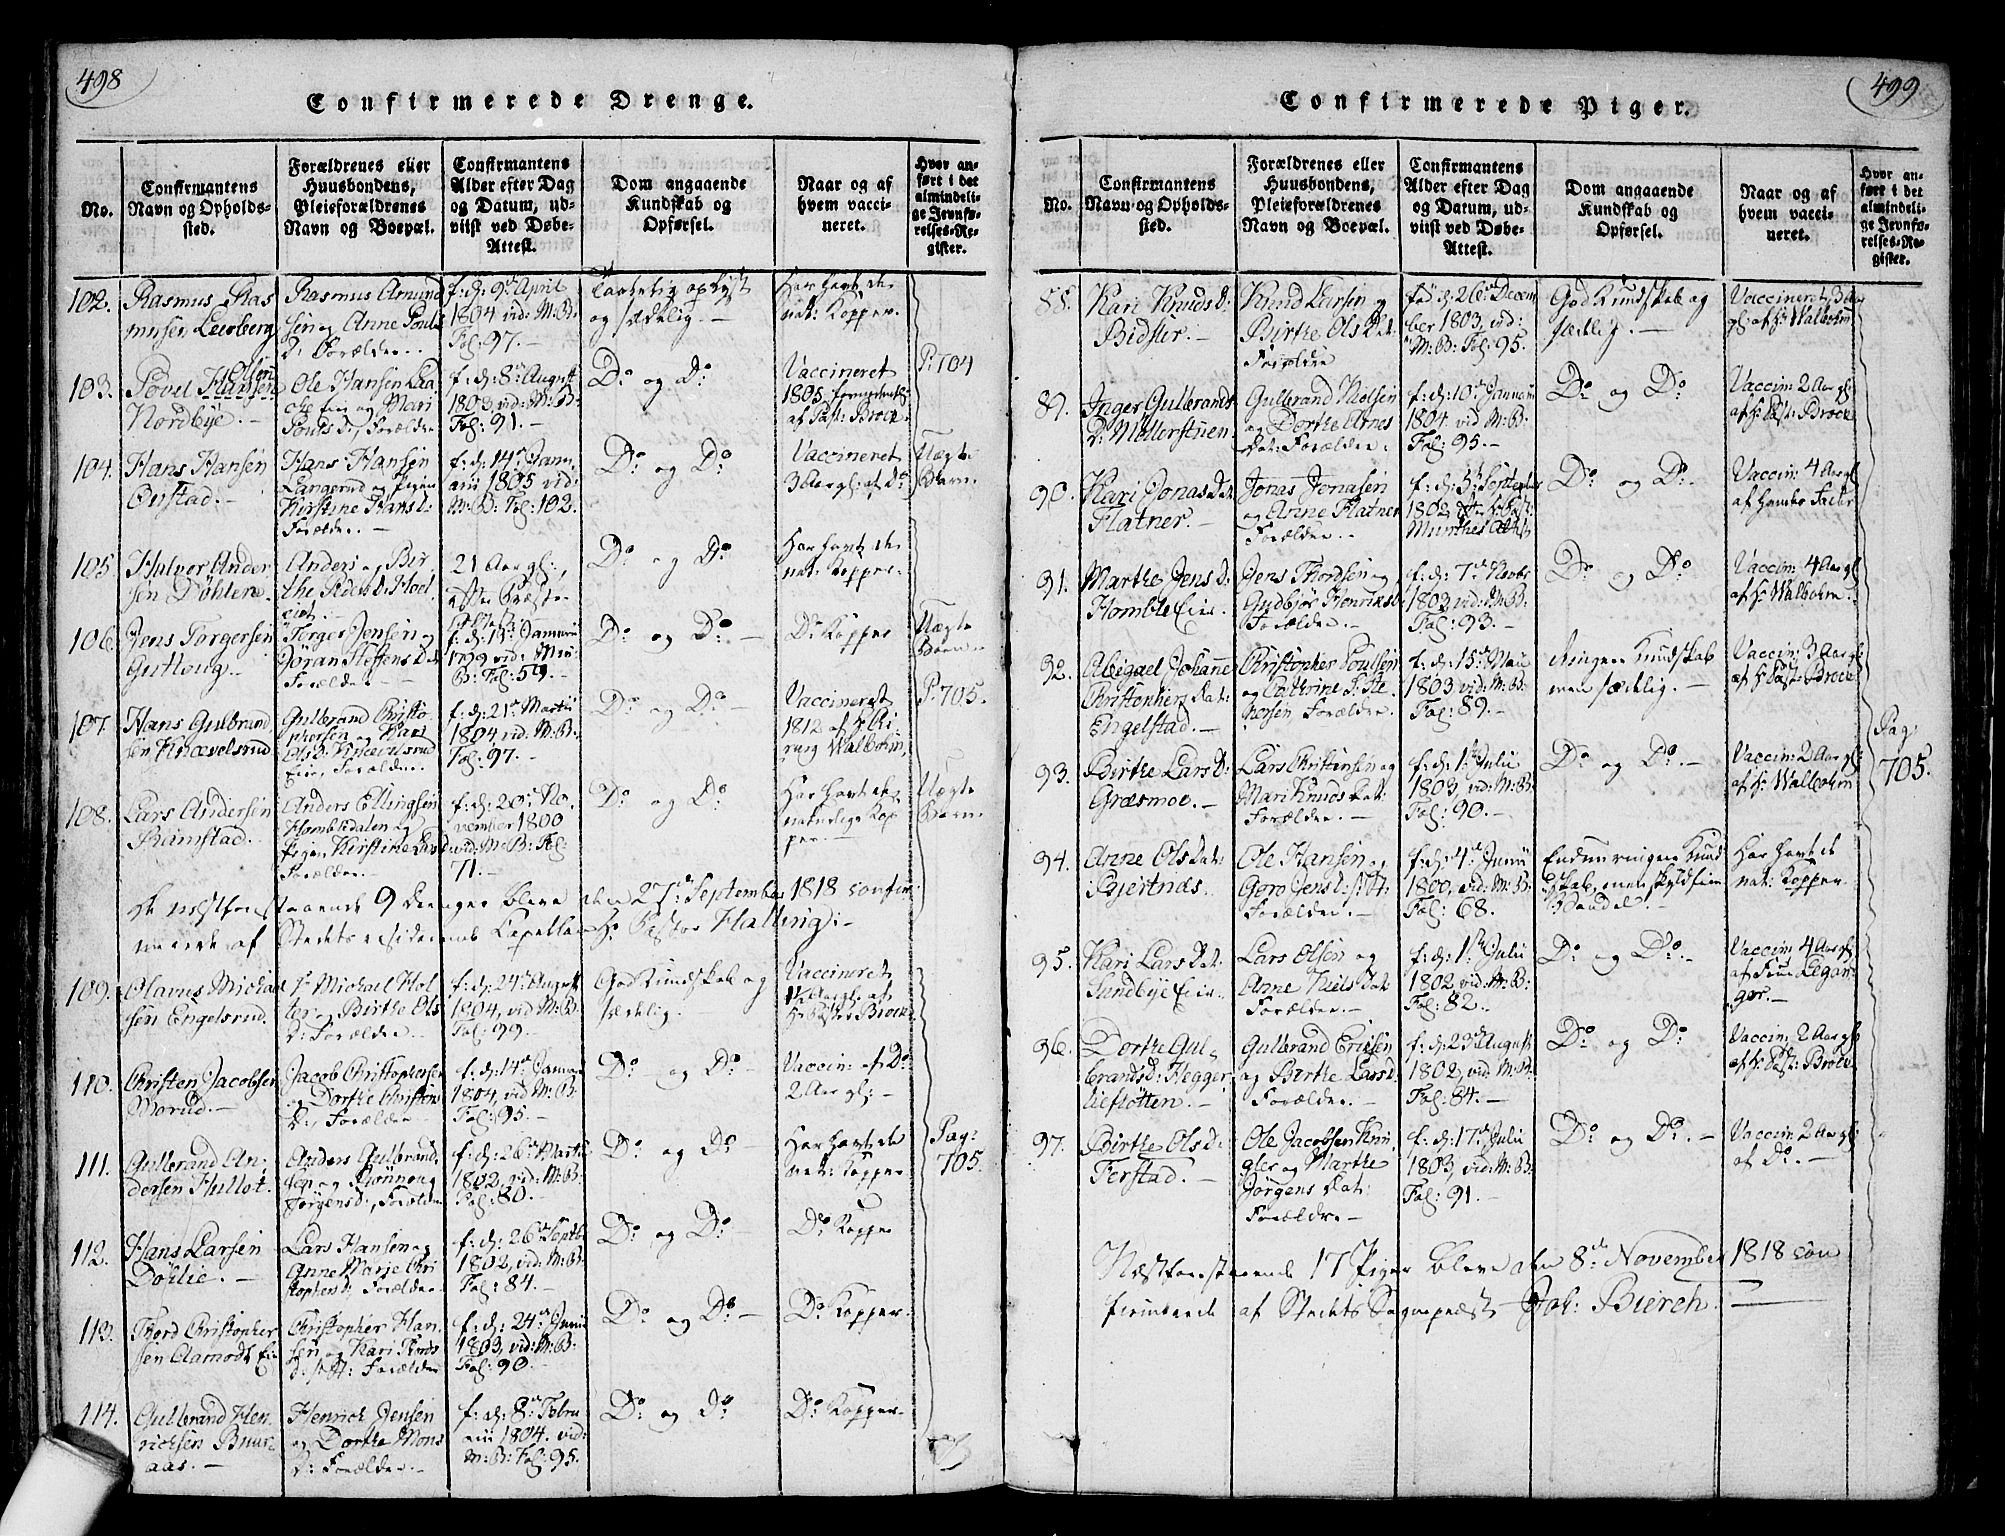 498
Confirmerede Drenge.
No.
Confirmantens
Navn og Opholds-
sted.
Forældrenes eller
Huusbondens,
Pleieforældrenes
Navn og Boepæl.
Confirmantens
Alder efter Dag
og Datum, ud-
viist ved Døbe-
Attest.
Dom angaaende
Kundskab og
Opførsel.
Naar og af
hvem vacci-
neret.
Hvor an-
ført i det
almindeli-
ge Jevnfø-
relses-Re-
gister.
102.
Rasmus Ras
musen Leerberg
Rasmus Amund
sen og Anne Pouls
D: Forældre.
f: d: 9de April
1804 vid: M: B:
Fol: 97.
og sædelig.
Har havt de
nat: Kopper.
103.
Povel Hansen
Olsen
Nordbye.
Ole Hansen
Eie og Mari
Pouls D:, Forældre
f: d: 8de August
1803, vid: M: B:
Fol: 91.
Do og Do
Vaccineret
1805
af Past: Brock
P: 704
104.
Hans Hansen
Onstad.
Hans Hansen
Langerud og Pigen
Kirstine Hans D:
Forældre.
f: d: 14de Janu
arii 1805 vid:
M: B: Fol: 102.
Do og Do
Vaccineret
3 Aar gl: af Do
Uægte
Barn.
105.
Halvor Ander
sen Døhlen.
Anders og Bir
the Peders D:
21 Aar gl:,
efter Præste
Do og Do
Har havt de
nat: Kopper.
106.
Jens Torgersen
Gutloug.
Torger Jensen og
Jøran Steffens D:
Forældre.
f: d: 15de Januarii
1799 vid: Mi:
B: Fol: 59.
Do og Do
Do Kopper
Uægte
Barn.
107.
Hans Gulbrand
sen Knævelsrud
Gulbrand Christo
phersen og Kari
Ols D: Knævelsrud
Eie, Forældre.
f: d: 21de Martii
1804 vid: M: B:
Fol: 97.
Do og Do
Vaccineret
1812 af Chi
rurg Walbohm,
P: 705.
108.
Lars Andersen
Ramstad.
Anders Ellingsen
Homledalen og
Pigen Kirstine Lars D:
Forældre.
f: d: 20de No
vember 1800
vid: M: B: Fol:
71.
Do og Do
Har havt de
naturlige Kop
per.
Uægte
Barn.
De næstforestaaende 9 Drenge bleve den 27de September 1818 confir:
merede af Stedets residerende Capellan Hr Pastor Halling:
109.
Olavus Michael
sen Engelsrud.
Michael Hol
ter og Birthe Ols
D: Forældre.
f: d: 24de August
1804, vid M: B:
Fol: 99.
God Kundskab og
sædelig.
Vaccineret
1½ Aar gl: af
Hr Pastor Brock
110.
Christen Jacobsen
Morud.
Jacob Christophersen
og Dorthe Christens
D:, Forældre
f: d: 14de Januar
1804, vid M: B:
Fol: 95.
Do og Do
Vaccin: af Do
2 Aar gl:
111.
Gulbrand An:
dersen Hullot.
Anders Gulbrand
sen og Rønnoug
Jørgens D:, Forældre
f: d: 26de Martii
1802, vid: M: B:
Fol: 80.
Do og Do
Har havt de
nat: Kopper
Pag:
705.
112.
Hans Larsen
Døhlie.
Lars Hansen og
Anne Marie Chri
stophers D: Forældre.
f: d: 26de Septb
1802, vid: M: B:
Fol: 84.
Do og Do
Do Kopper
113.
Thord Christopher
sen Aamodt Eie
Christopher Han
sen og Kari Thords
D: Forældre
f: d: 24de Junii
1803, vid: M: B:
Fol: 90.
Do og Do
Do Kopper.
114.
Gulbrand Hen
richsen Buur:
aas.
Henrich Jensen
og Dorthe Mons
D: Forældre.
f: d: 8de Febru
arii 1804. vid:
M: B: Fol: 95.
Do og Do
Do Kopper.
499
Confirmerede Piger.
No.
Confirmantens
Navn og Opholds-
sted.
Forældrenes eller
Huusbondens,
Pleieforældrenes
Navn og Boepæl.
Confirmantens
Alder efter Dag
og Datum, ud-
viist ved Døbe-
Attest.
Dom angaaende
Kundskab og
Opførsel.
Naar og af
hvem vacci-
neret.
Hvor an-
ført i det
almindeli-
ge Jevnfø-
relses-Re-
gister.
88.
Kari Knuds D:
Bidster.
Knud Larsen og
Birthe Ols Dat:
Forældre
fød d: 26de Decem
ber 1803, vid:
M: B: Fol: 95.
God Kundskab og
sædelig.
Vaccineret, 3 Aar
gl: af Hr Walbohm
89.
Inger Gulbrands
D: Møllerstuen.
Gulbrand Nielsen
og Dorthe Arnes
Dat: Forældre.
f: d: 10de Januarii
1804. vid M: B:
Fol: 95.
Do og Do
Vaccin: 2 Aar gl:
af Hr Past: Brock
90.
Kari Jonas Dat:
Flatner.
Jonas Jonasen
og Anne Flatner
Forældre.
f: d: 5de September
1802
Munthes Attest
Do og Do.
Vaccin: 4 Aar gl:
91.
Marthe Jens D:
Homble Eie.
Jens Thordsen og
Gudbjør Henriks D:
Forældre.
f: d: 7de Novbr
1803, vid: M: B:
Fol: 93.
Do og Do.
Vaccin: 4 Aar gl
af Hr Walbohm.
92.
Abigael Johanne
Christophers Dat:
Engelstad.
Christopher Poulsen
og Cathrine
Forældre.
f: d: 15de Maii
1803 vid: M: B:
Fol: 89.
Ringere Kundskab
men sædelig.
Vaccin: 3 Aar gl
af Hr Past: Brock
93.
Birthe Lars D:
Græsmoe.
Lars Christensen og
Mari Knuds Dat:
Forældre.
f: d: 1ste Julii
1803, vid: M: B:
Fol: 90.
Do og Do.
Vaccin: 2 Aar gl:
af Hr Walbohm
Pag:
705.
94.
Anne Ols Dat:
Gjertnæs.
Ole Hansen og
Goro Jens D:
Forældre.
f: d: 4de Junii
1800, vid: M: B:
Fol: 68.
Endnu ringere Kund
skab, men skyldfrie
Vandel.
Har havt de
nat: Kopper.
95.
Kari Lars Dat:
Sundbye Eie.
Lars Olsen og
Anne Niels Dat:
Forældre.
f: d: 1ste Julii
1802 vid: M: B:
Fol: 82.
Do og Do.
Vaccin: 4 Aar gl:
96.
Dorthe Gul:
brands D: Hegger
liefløtten.
Gulbrand Ericsen
og Birthe Lars D:
Forældre.
f: d: 29de August
1802, vid: M: B:
Fol: 84.
Do og Do
Vaccin: 2 Aar gl:
af Hr Past: Brock
97.
Birthe Ols D:
Ferstad.
Ole Jacobsen Knu
gler og Marthe
Jørgens Dat:
Forældre.
f: d: 17de Julii
1803, vid: M: B:
Fol: 91.
Do og Do.
Vaccin: 2 Aar gl:
af Do.
Næstforestaaende 17 Piger bleve den 8de November 1818 con
firmerede af Stedets Sognepræst Joh: Bierch.